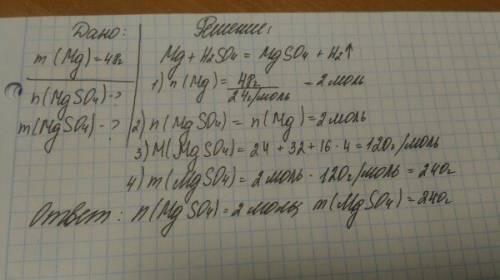 Дано:
m(Mg)=48г
n(MgSO4)-?
m(MgSO4)-?
Решение:
Mg+H2SO4=MgSO4+H2↑
1) n(Mg)= 48г / 24г/моль =2моль
2) n(MgSO4)=n(Mg)=2моль
3) M(MgSO4)=24+32+16·4=120г/моль
4) m(MgSO4)=2моль·120г/моль=240г
Ответ: n(MgSO4)=2моль, m(MgSO4)=240г